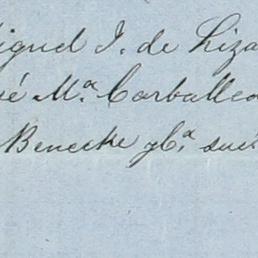 Miguel I. de Liza
sé Mª Carballed
Benecke y Cª suc